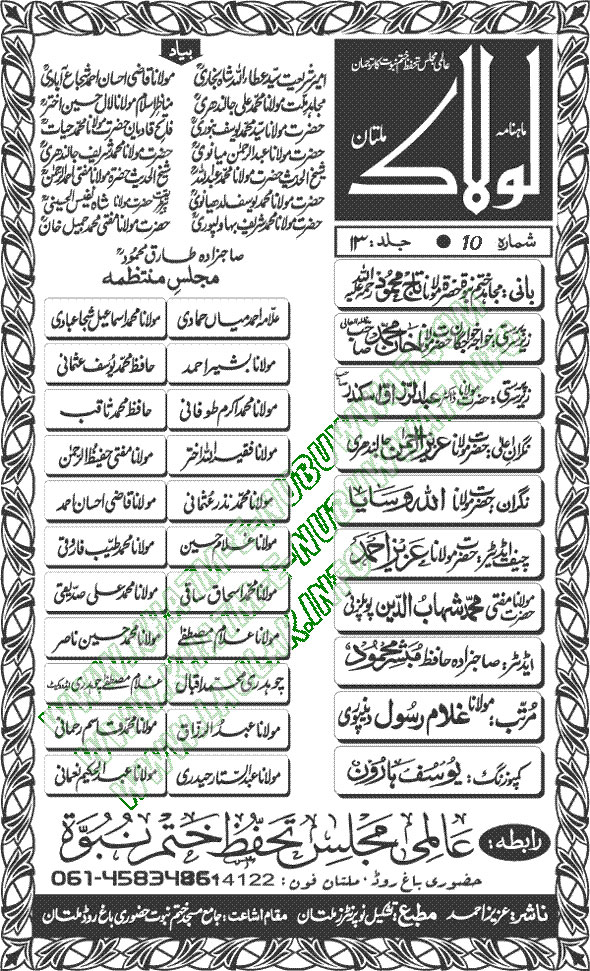 عالمی مجلس تحفظ ختم نبوت کا ترجمان
ماہنامہ
لولاک
ملتان
شمارہ : 10 ● جلد : ۱۳
بانی : مجاہد ختم نبوۃ حضرت مولانا تاج محمود رحمۃ اللہ علیہ
زیر سرپرستی : خواجہ خواجگان حضرت مولانا خان محمد صاحب
زیر سرپرستی : حضرت مولانا ڈاکٹر عبدالرزاق اسکندر
نگران اعلیٰ : حضرت مولانا عزیز الرحمٰن جالندھری
نگران : حضرت مولانا اللہ وسایا
چیف ایڈیٹر : حضرت مولانا عزیز احمد
حضرت مولانا مفتی محمد شہاب الدین پوپلزئی
ایڈیٹر : صاحبزادہ حافظ مبشر محمود
مرتب : مولانا غلام رسول دینپوری
کمپوزنگ : یوسف ہارون
بیاد
امیر شریعت سید عطاء اللہ شاہ بخاری مولانا قاضی احسان احمد شجاع آبادی
مجاہد ملت مولانا محمد علی جالندھری مناظر اسلام مولانا لال حسین اختر
حضرت مولانا سید محمد یوسف بنوری فاتح قادیان حضرت مولانا محمد حیات
حضرت مولانا عبدالرحمٰن میانوی حضرت مولانا محمد شریف جالندھری
شیخ الحدیث حضرت مولانا محمد عبداللہ شیخ الحدیث حضرت مولانا مفتی احمد الرحمٰن
حضرت مولانا محمد یوسف لدھیانوی حضرت مولانا شاہ نفیس الحسینی
حضرت مولانا محمد شریف بہاولپوری حضرت مولانا مفتی محمد جمیل خان
صاحبزادہ طارق محمود
مجلس منتظمہ
علامہ احمد میاں حمادی مولانا محمد اسماعیل شجاعبادی
مولانا بشیر احمد حافظ محمد یوسف عثمانی
مولانا محمد اکرم طوفانی حافظ محمد ثاقب
مولانا فقیر اللہ اختر مولانا مفتی حفیظ الرحمٰن
مولانا محمد نذر عثمانی مولانا قاضی احسان احمد
مولانا غلام حسین مولانا محمد طیب فاروقی
مولانا محمد اسحاق ساقی مولانا محمد علی صدیقی
مولانا غلام مصطفےٰ مولانا محمد حسین ناصر
چوہدری محمد اقبال غلام مصطفےٰ چوہدری ایڈووکیٹ
مولانا عبدالرزاق مولانا محمد قاسم رحمانی
مولانا عبدالستار حیدری مولانا عبدالحکیم نعمانی
رابطہ : عالمی مجلس تحفظ ختم نبوۃ
حضوری باغ روڈ، ملتان فون : 061-4583486
ناشر : عزیز احمد مطبع : تشکیل نو پرنٹرز ملتان مقام اشاعت : جامع مسجد ختم نبوت حضوری باغ روڈ ملتان